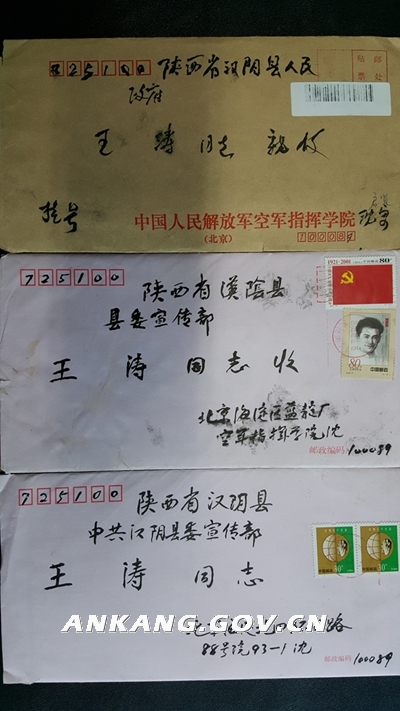 725100
陕西省汉阴县人民
政府
贴邮
票处
王 涛 同志 亲收
挂号
中国人民解放军空军指挥学院
(北京)
100089
725100
陕西省漢陰县
县委宣传部
1921-2001
中国邮政80分
80
中国邮政
王 涛 同志 收
北京海淀区蓝靛厂
空军指挥学院 沈
邮政编码 100089
725100
陕西省汉阴县
中共汉阴县委宣传部
30
30
王 涛 同志
ANKANG.GOV.CN
路
88号院93-1 沈
邮政编码 100089